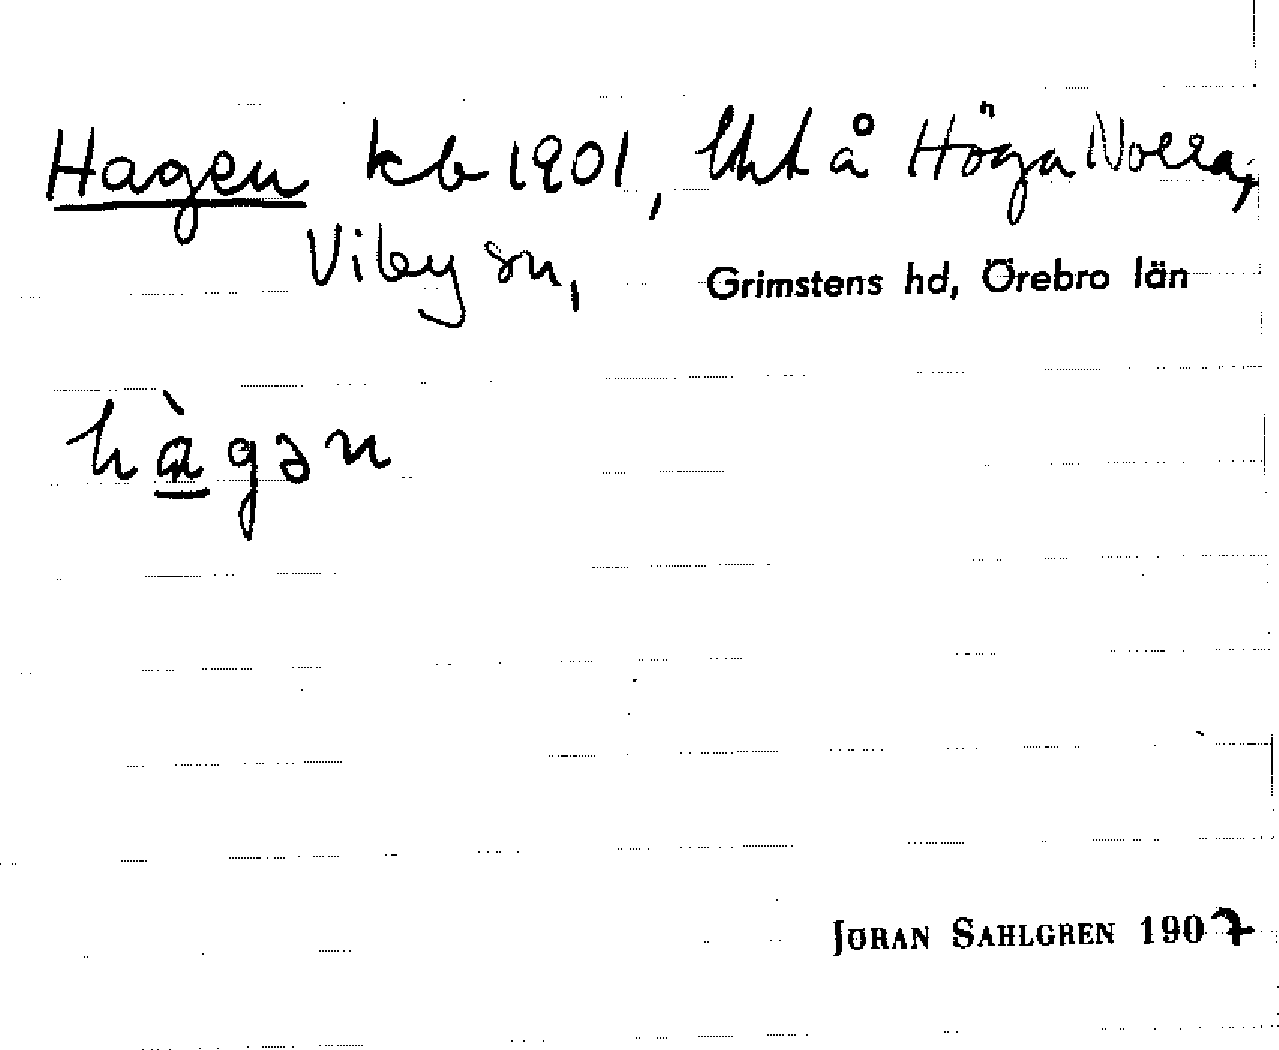 Hagen kb 1901, lht å Höga Norra,
Viby sn, Grimstens hd, Örebro län
hàgən
JÖRAN SAHLGREN 1907